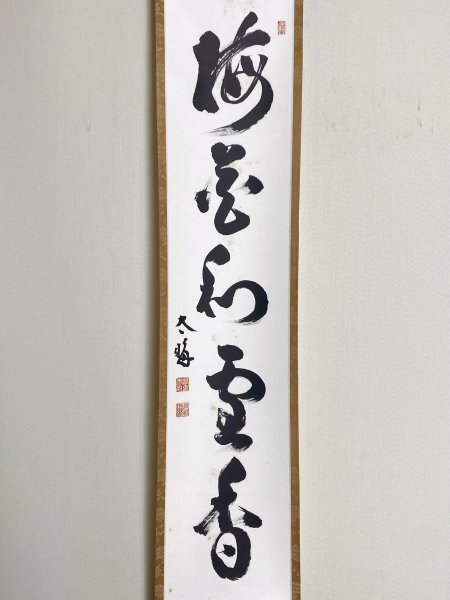 梅花和雪香